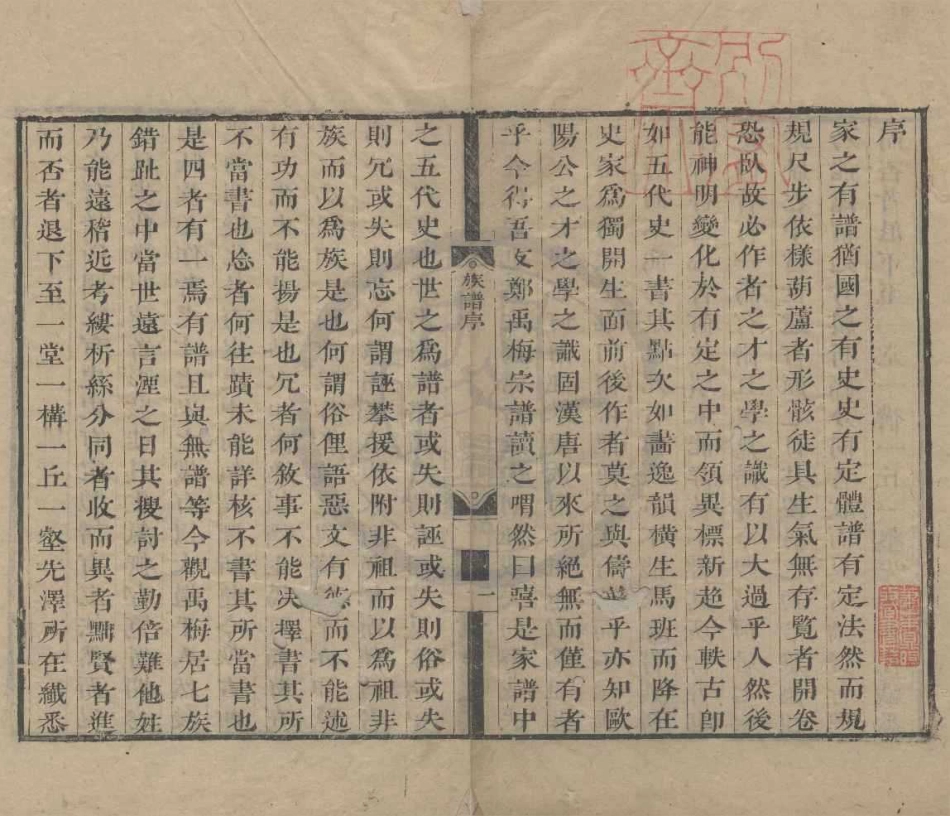 序
家之有譜猶國之有史史有定體譜有定法然而規
規尺步依樣葫蘆者形骸徒具生氣無存覽者開卷
恐臥故必作者之才之學之識有以大過乎人然後
能神明變化於有定之中而領異標新超今軼古即
如五代史一書其點次如畵逸韻橫生馬班而降在
史家爲獨開生面前後作者莫之與儔葢乎亦知歐
陽公之才之學之識固漢唐以來所絕無而僅有者
乎今得吾友鄭禹梅宗譜讀之喟然曰嘻是家譜中
族譜序
一
之五代史也世之爲譜者或失則誣或失則俗或失
則冗或失則忘何謂誣攀援依附非祖而以爲祖非
族而以爲族是也何謂俗俚語惡文有德而不能述
有功而不能揚是也冗者何敘事不能决擇書其所
不當書也忘者何往蹟未能詳核不書其所當書也
是四者有一焉有譜且與無譜等今觀禹梅居七族
錯趾之中當世遠言湮之日其搜討之勤倍難他姓
乃能遠稽近考縷析絲分同者收而異者黜賢者進
而否者退下至一堂一構一丘一壑先澤所在纖悉